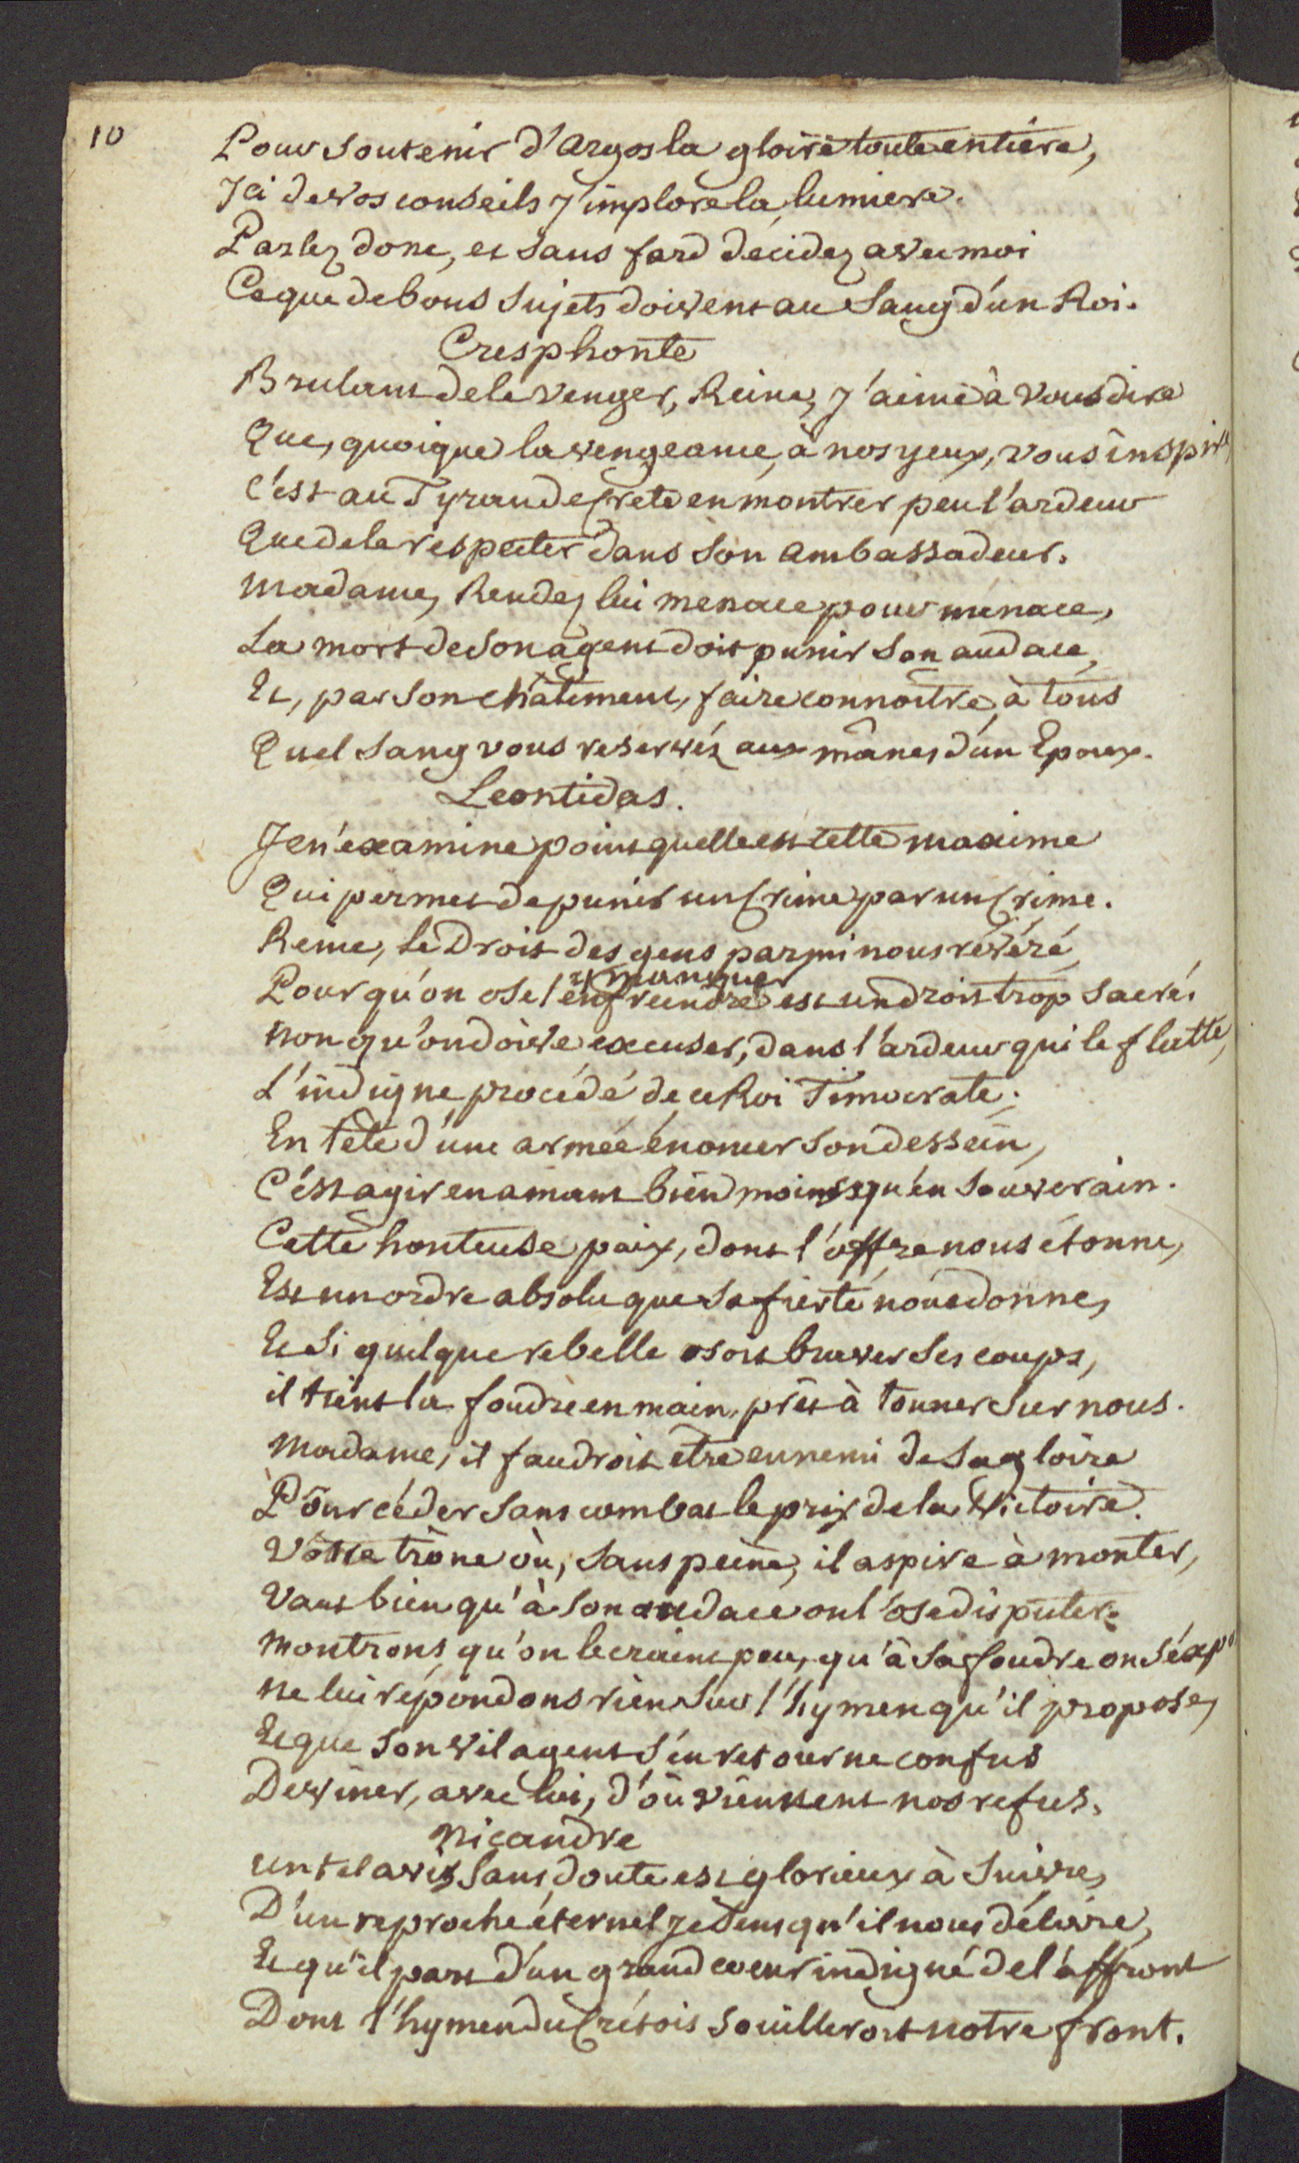 10
Pour soutenir d'Argos la gloire toute entiére,
Ici de vos conseils j'implore la lumiere.
Parlez donc, et sans fard décidez avec moi
Ce que de bons sujets doivent au Sang d'un Roi.
Cresphonte
Brulant de le venger, Reine, j'aime à vous dire
Que, quoique la vengeance, à nos yeux, vous inspire,
C'est au Tyran de Crete en montrer peu l'ardeur
Que de le respecter dans son ambassadeur.
Madame, Rendez lui menace pour menace,
La mort de son agent doit punir son audace,
Et, par son châtiment, faire connoître à tous
Quel sang vous reservéz aux mânes d'un Epoux.
Leontidas.
Je n'examine point quelle est cette maxime
Qui permet de punir un Crime par un Crime.
Reine, le Droit des gens parmi nous révéré,
y manquer
Pour qu'on ose l'enfreindre est un droit trop sacré.
Non qu'on doive excuser, dans l'ardeur qui le flatte,
L'indigne procédé de ce Roi Timocrate;
En tête d'une armée énoncer son dessein,
C'est agir en amant bien moins qu'en souverain.
Cette honteuse paix, dont l'offre nous étonne,
Est un ordre absolu que sa fierté nous donne,
Et Si quelque rebelle osoit braver ses coups,
il tient la foudre en main, prêt à tonner sur nous.
Madame, il faudroit etre ennemi de sa gloire
Pour céder sans combat le prix de la Victoire.
Votre trône où, sans peine, il aspire à monter,
Vaut bien qu'à son audace on l'ose disputer.
Montrons qu'on le craint peu, qu'à sa foudre on s'exp
ne lui répondons rien sur l'hymen qu'il propose,
Et que son vil agent s'en retourne confus
Deviner, avec lui, d'où viennent nos refus.
Nicandre
un tel avis sans doute est glorieux à suivre,
D'un reproche éternel je sens qu'il nous délivre,
Et qu'il part d'un grand coeur indigné de l'affront
Dont l'hymen du Crétois souilleroit notre front.